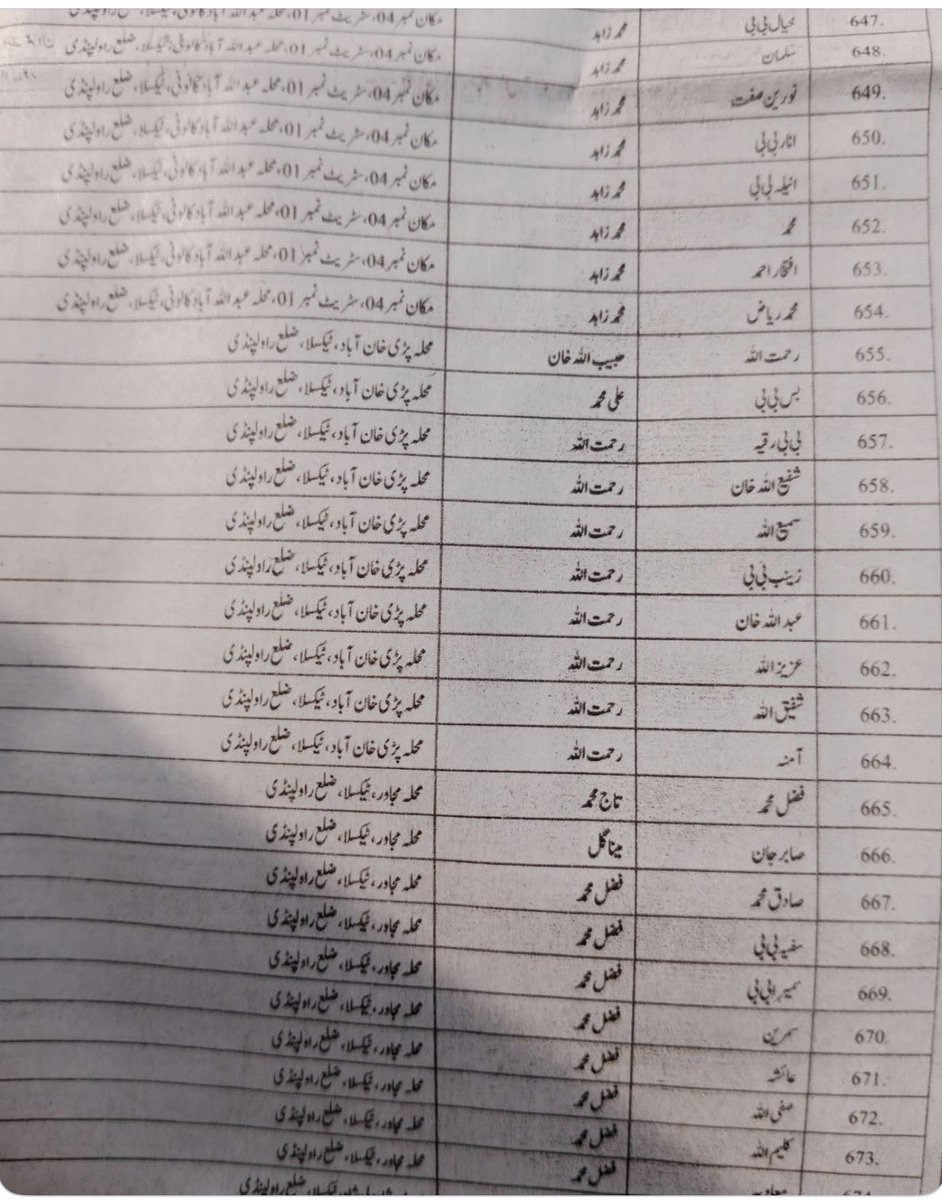 647. خیال بی بی محمد زاہد مکان نمبر 04، سٹریٹ نمبر 01، محلہ عبداللہ آباد کالونی، ٹیکسلا، ضلع راولپنڈی
648. محمد زاہد مکان نمبر 04، سٹریٹ نمبر 01، محلہ عبداللہ آباد کالونی، ٹیکسلا، ضلع راولپنڈی
649. نورین صفت محمد زاہد مکان نمبر 04، سٹریٹ نمبر 01، محلہ عبداللہ آباد کالونی، ٹیکسلا، ضلع راولپنڈی
650. انار بی بی محمد زاہد مکان نمبر 04، سٹریٹ نمبر 01، محلہ عبداللہ آباد کالونی، ٹیکسلا، ضلع راولپنڈی
651. انیلہ بی بی محمد زاہد مکان نمبر 04، سٹریٹ نمبر 01، محلہ عبداللہ آباد کالونی، ٹیکسلا، ضلع راولپنڈی
652. محمد محمد زاہد مکان نمبر 04، سٹریٹ نمبر 01، محلہ عبداللہ آباد کالونی، ٹیکسلا، ضلع راولپنڈی
653. افتخار احمد محمد زاہد مکان نمبر 04، سٹریٹ نمبر 01، محلہ عبداللہ آباد کالونی، ٹیکسلا، ضلع راولپنڈی
654. محمد ریاض محمد زاہد مکان نمبر 04، سٹریٹ نمبر 01، محلہ عبداللہ آباد کالونی، ٹیکسلا، ضلع راولپنڈی
655. رحمت اللہ حبیب اللہ خان محلہ پڑی خان آباد، ٹیکسلا، ضلع راولپنڈی
656. بس بی بی علی محمد محلہ پڑی خان آباد، ٹیکسلا، ضلع راولپنڈی
657. بی بی رقیہ رحمت اللہ محلہ پڑی خان آباد، ٹیکسلا، ضلع راولپنڈی
658. شفیع اللہ خان رحمت اللہ محلہ پڑی خان آباد، ٹیکسلا، ضلع راولپنڈی
659. سمیع اللہ رحمت اللہ محلہ پڑی خان آباد، ٹیکسلا، ضلع راولپنڈی
660. زینب بی بی رحمت اللہ محلہ پڑی خان آباد، ٹیکسلا، ضلع راولپنڈی
661. عبداللہ خان رحمت اللہ محلہ پڑی خان آباد، ٹیکسلا، ضلع راولپنڈی
662. عزیز اللہ رحمت اللہ محلہ پڑی خان آباد، ٹیکسلا، ضلع راولپنڈی
663. شفیق اللہ رحمت اللہ محلہ پڑی خان آباد، ٹیکسلا، ضلع راولپنڈی
664. آمنہ رحمت اللہ محلہ پڑی خان آباد، ٹیکسلا، ضلع راولپنڈی
665. فضل محمد تاج محمد محلہ مجاور، ٹیکسلا، ضلع راولپنڈی
666. صابر جان مینا گل محلہ مجاور، ٹیکسلا، ضلع راولپنڈی
667. صادق محمد فضل محمد محلہ مجاور، ٹیکسلا، ضلع راولپنڈی
668. سفیہ بی بی فضل محمد محلہ مجاور، ٹیکسلا، ضلع راولپنڈی
669. سمیرا بی بی فضل محمد محلہ مجاور، ٹیکسلا، ضلع راولپنڈی
670. سمرین فضل محمد محلہ مجاور، ٹیکسلا، ضلع راولپنڈی
671. عائشہ فضل محمد محلہ مجاور، ٹیکسلا، ضلع راولپنڈی
672. صفی اللہ فضل محمد محلہ مجاور، ٹیکسلا، ضلع راولپنڈی
673. کلیم اللہ فضل محمد محلہ مجاور، ٹیکسلا، ضلع راولپنڈی
فضل محمد